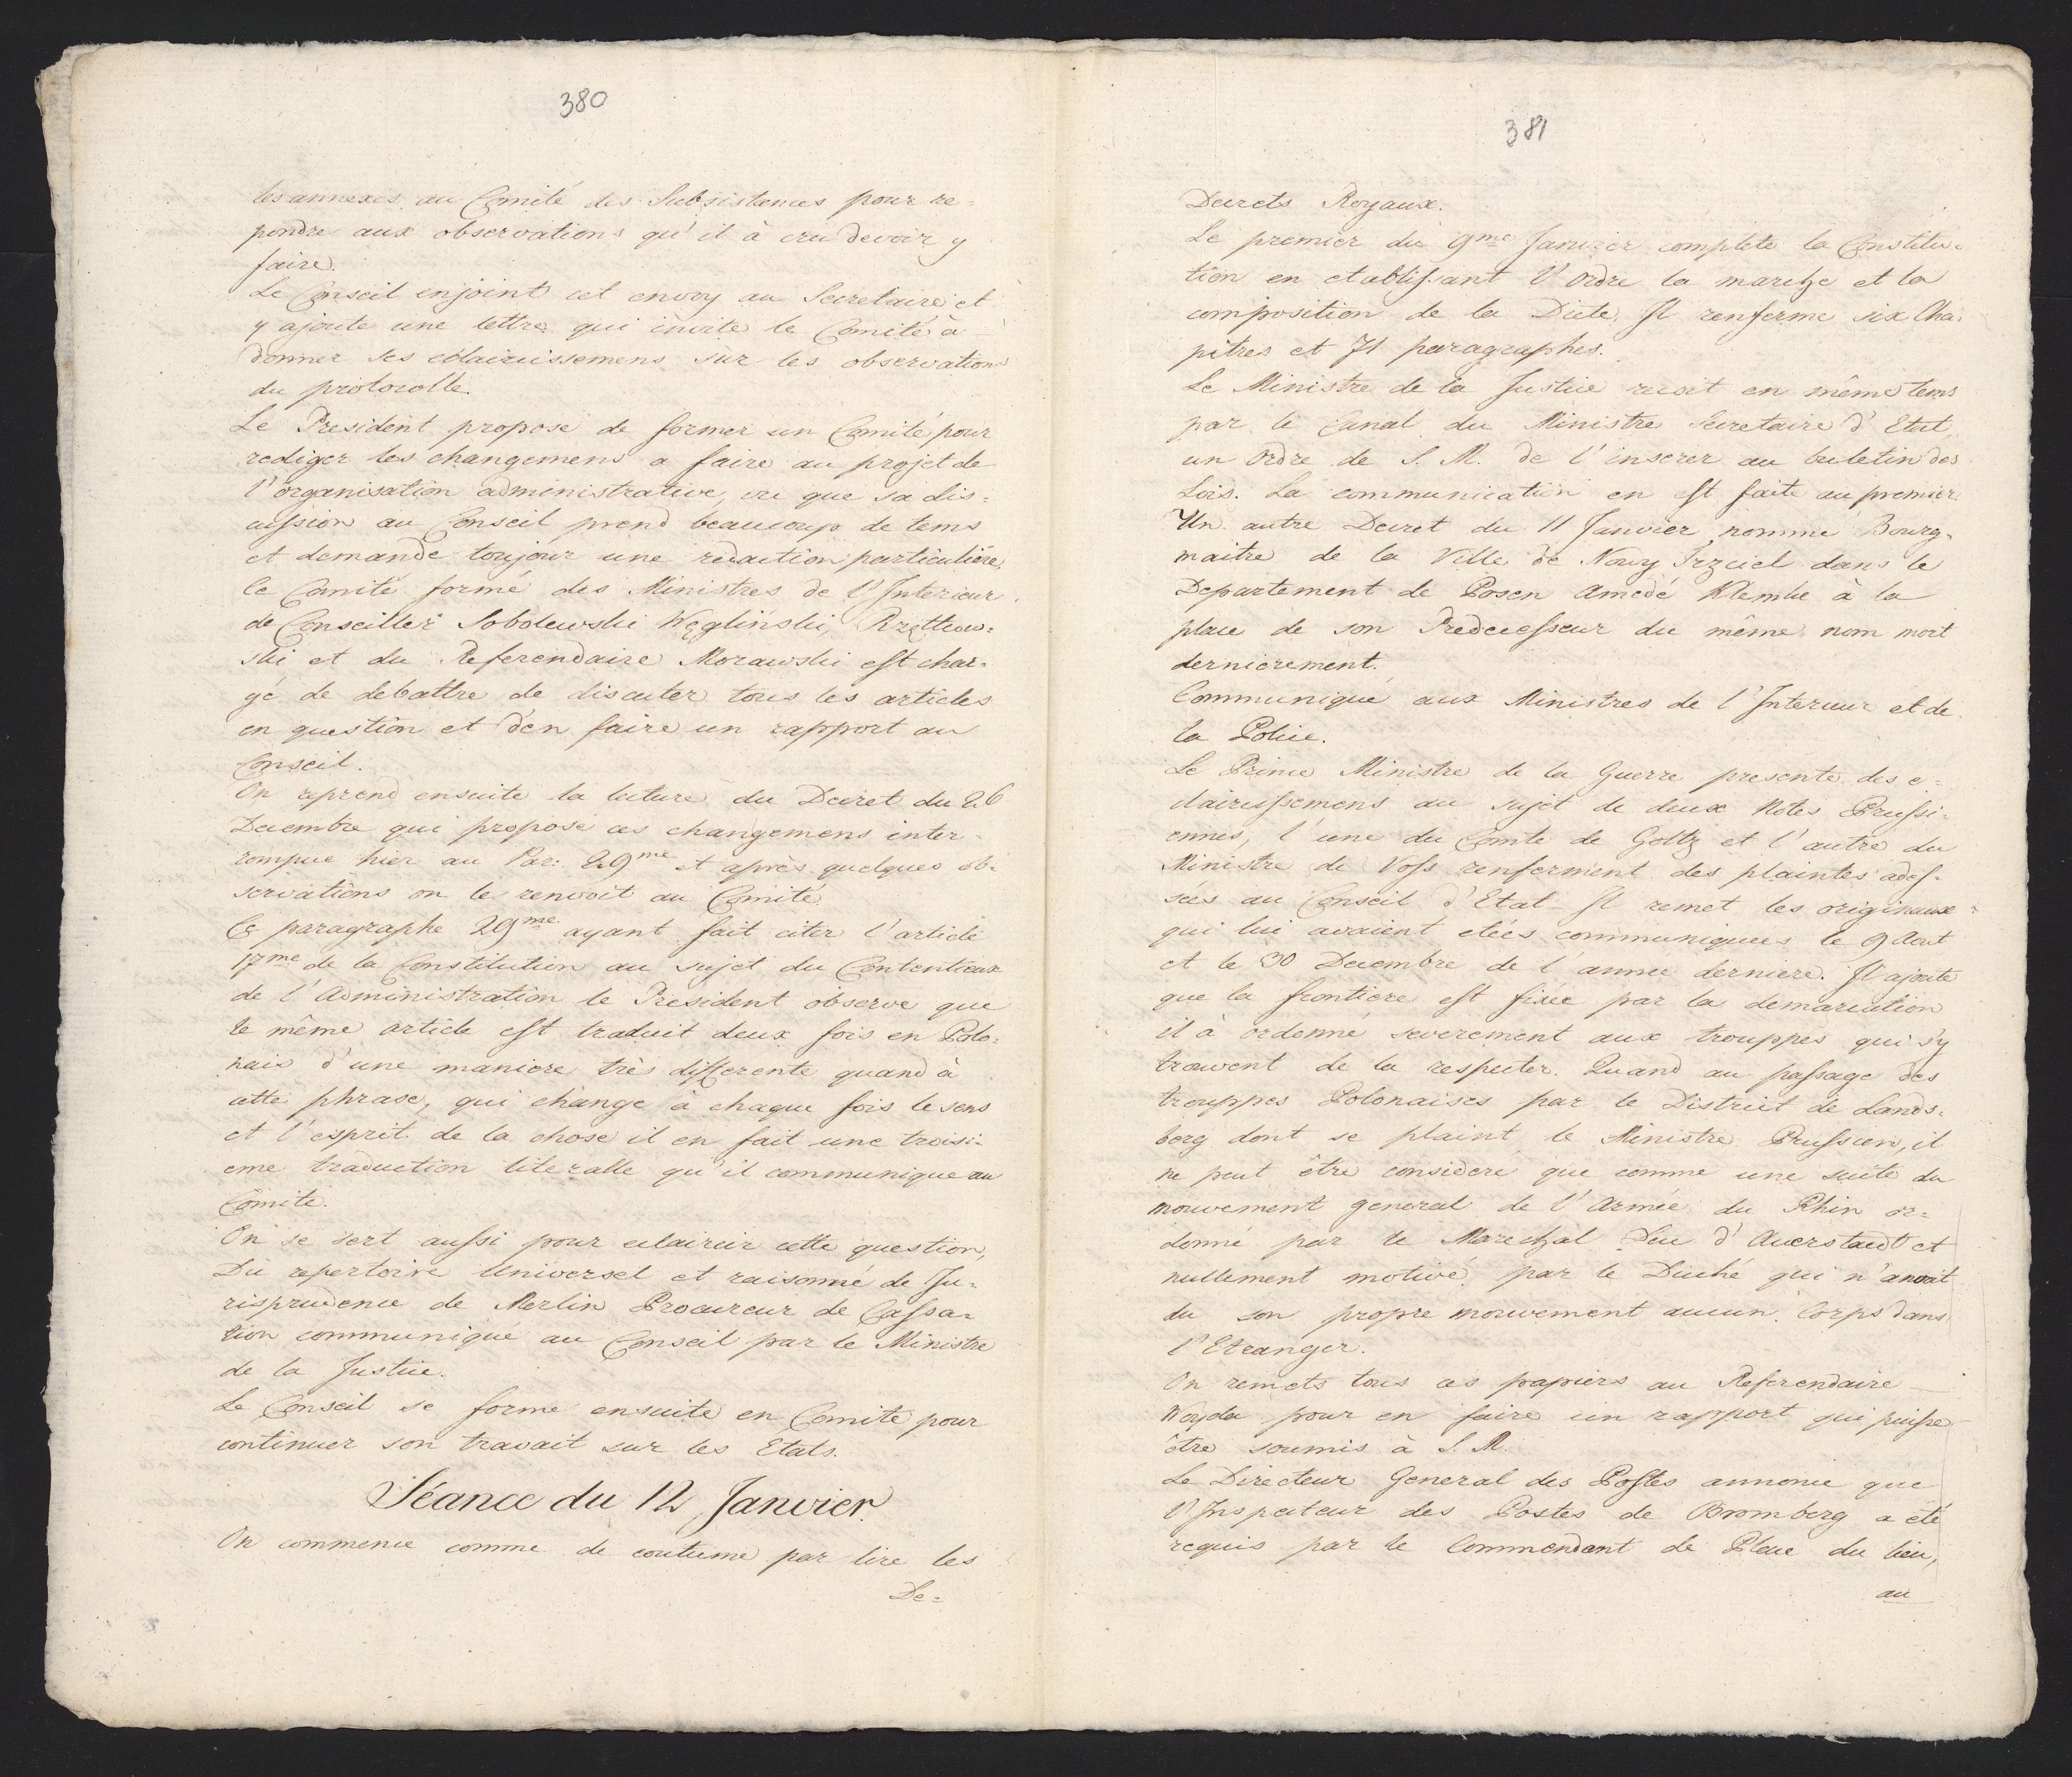 380
les annexes au Comité des Subsistences pour re=
pondre aux observations qu'il à cru devoir y
faire.
Le Conseil enjoint cet envoy au Secretaire et
y ajoute une lettre qui invite le Comité à
donner ses eclaircissemens sur les observations
du protocolle.
Le President propose de former un Comité pour
rediger les changemens a faire au projet de
l'organisation administrative, vu que sa dis=
cussion au Conseil prend beaucoup de tems
et demande toujour une redaction particulière,
le Comité formé des Ministres de l'Interieur
de Conseiller Sobolewski Węgliński, Rzętkow=
ski et du Referendaire Morawski est char=
gé de debattre de discuter tous les articles
en question et d'en faire un rapport au
Conseil.
On reprend ensuite la lecture du Decret du 26
Decembre qui propose ces changemens inter=
rompue hier au Par: 29me et après quelques ob=
servations on le renvoit au Comité
Ce paragraphe 29me ayant fait citer l'article
17me de la Constitution au sujet du Contentieux
de l'Administration le President observe que
le même article est traduit deux fois en Polo=
nais d'une maniere très differente quand à
cette phrase, qui change à chaque fois le sens
et l'esprit de la chose il en fait une troisi=
eme traduction literalle qu'il communique au
Comité.
On se sert aussi pour eclaircir cette question,
Du repertoire Universel et raisonné de Ju=
risprudence de Merlin Procureur de Cassa=
tion communiqué au Conseil par le Ministre
de la Justice.
Le Conseil se forme ensuite en Comité pour
continuer son travait sur les Etats.
Séance du 12 Janvier.
On commence comme de coutume par lire les
De=
381
Decrets Royaux.
Le premier du 9me Janvier complete la Constitu=
tion en etablissant l'Ordre la marche et la
composition de la Diete, Il renferme six Cha=
pitres et 71 paragraphes.
Le Ministre de la Justice recoit en même tems
par le Canal du Ministre Secretaire d'Etat
un Ordre de S. M. de l'inserer au buletin des
Lois. La communication en est faite au premier.
Un autre Decret du 11 Janvier nomme Bourg=
maitre de la Ville de Nowy Trzciel dans le
Departement de Posen Amedé Klemke à la
place de son Predecesseur du même nom mort
dernierement.
Communiqué aux Ministres de l'Interieur et de
la Police.
Le Prince Ministre de la Guerre presente des e=
claircissemens au sujet de deux Notes Prussi=
ennes, l'une du Comte de Goltz et l'autre du
Ministre de Voss renferment des plaintes adres=
sées au Conseil d'Etat Il remet les originaux
qui lui avaient etées communiquées le 9 Aout
et le 30 Decembre de l'année derniere. Il ajoute
que la frontiere est fixée par la demarcation
il à ordonné severement aux trouppes qui s'y
trouvent de la respecter. Quand au passage des
trouppes Polonaises par le District de Lands=
berg dont se plaint le Ministre Prussien, il
ne peut être consideré que comme une suite du
mouvement general de l'Armée du Rhin or=
donné par le Marechal Duc d'Auerstaedt et
nullement motivé par le Duché qui n'avoit
du son propre mouvement aucun Corps dans
l'Etranger.
On remets tous ces papiers au Referendaire
Woyda pour en faire un rapport qui puisse
être soumis à S. M.
Le Directeur General des Postes annonce que
l'Inspecteur des Postes de Bromberg a été
requis par le Commendant de Place du lieu,
au